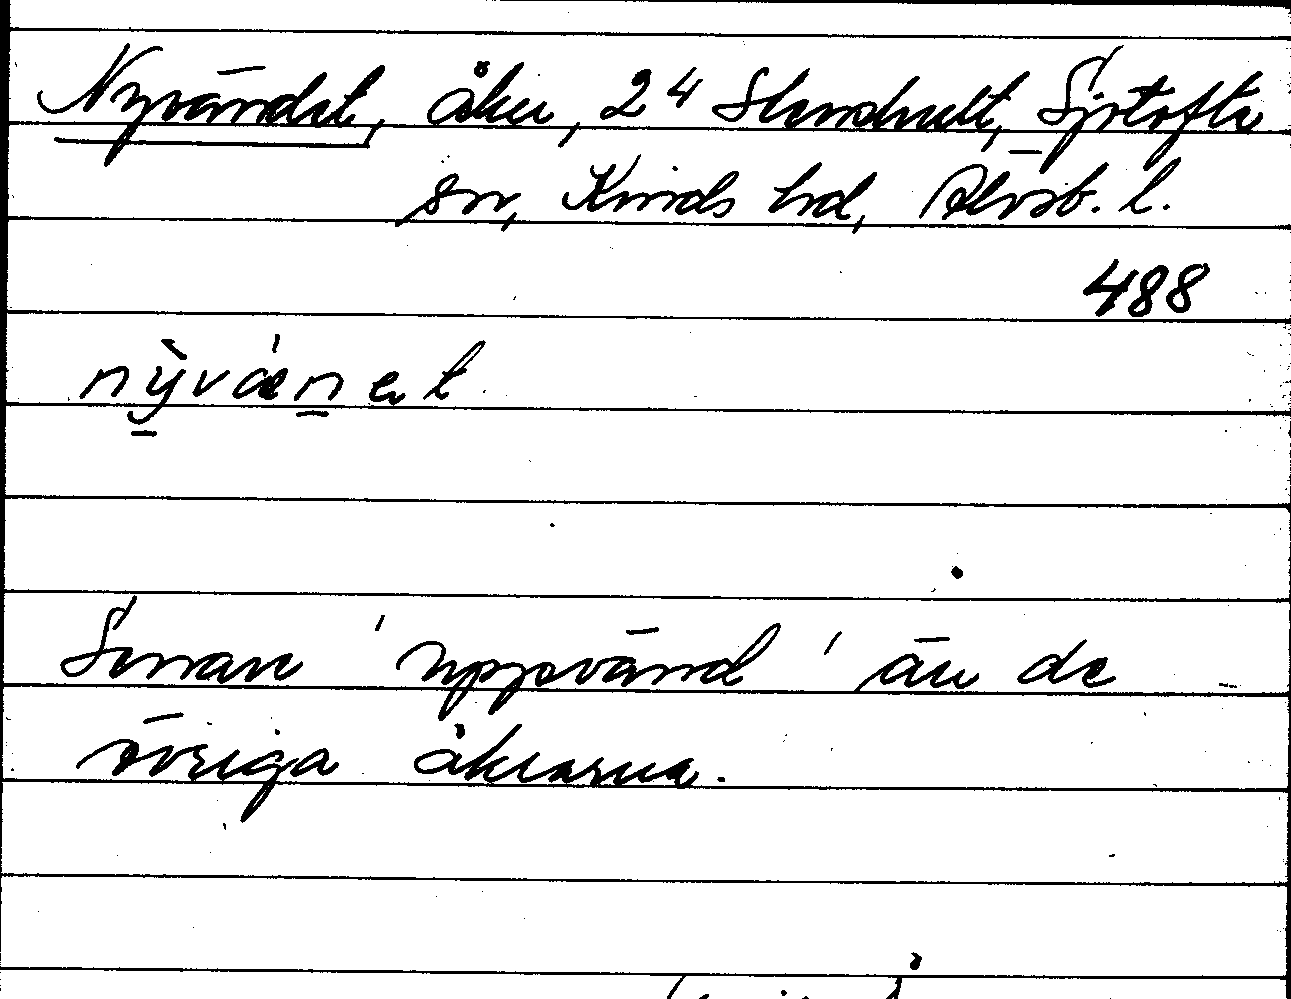 Nyvändet, åker, 2⁴ Slemhult, Sjötofta
sn, Kinds hd, Älvsb. l.
488
nỳvǽnet
Senare 'uppvänd' än de
övriga åkrarna.